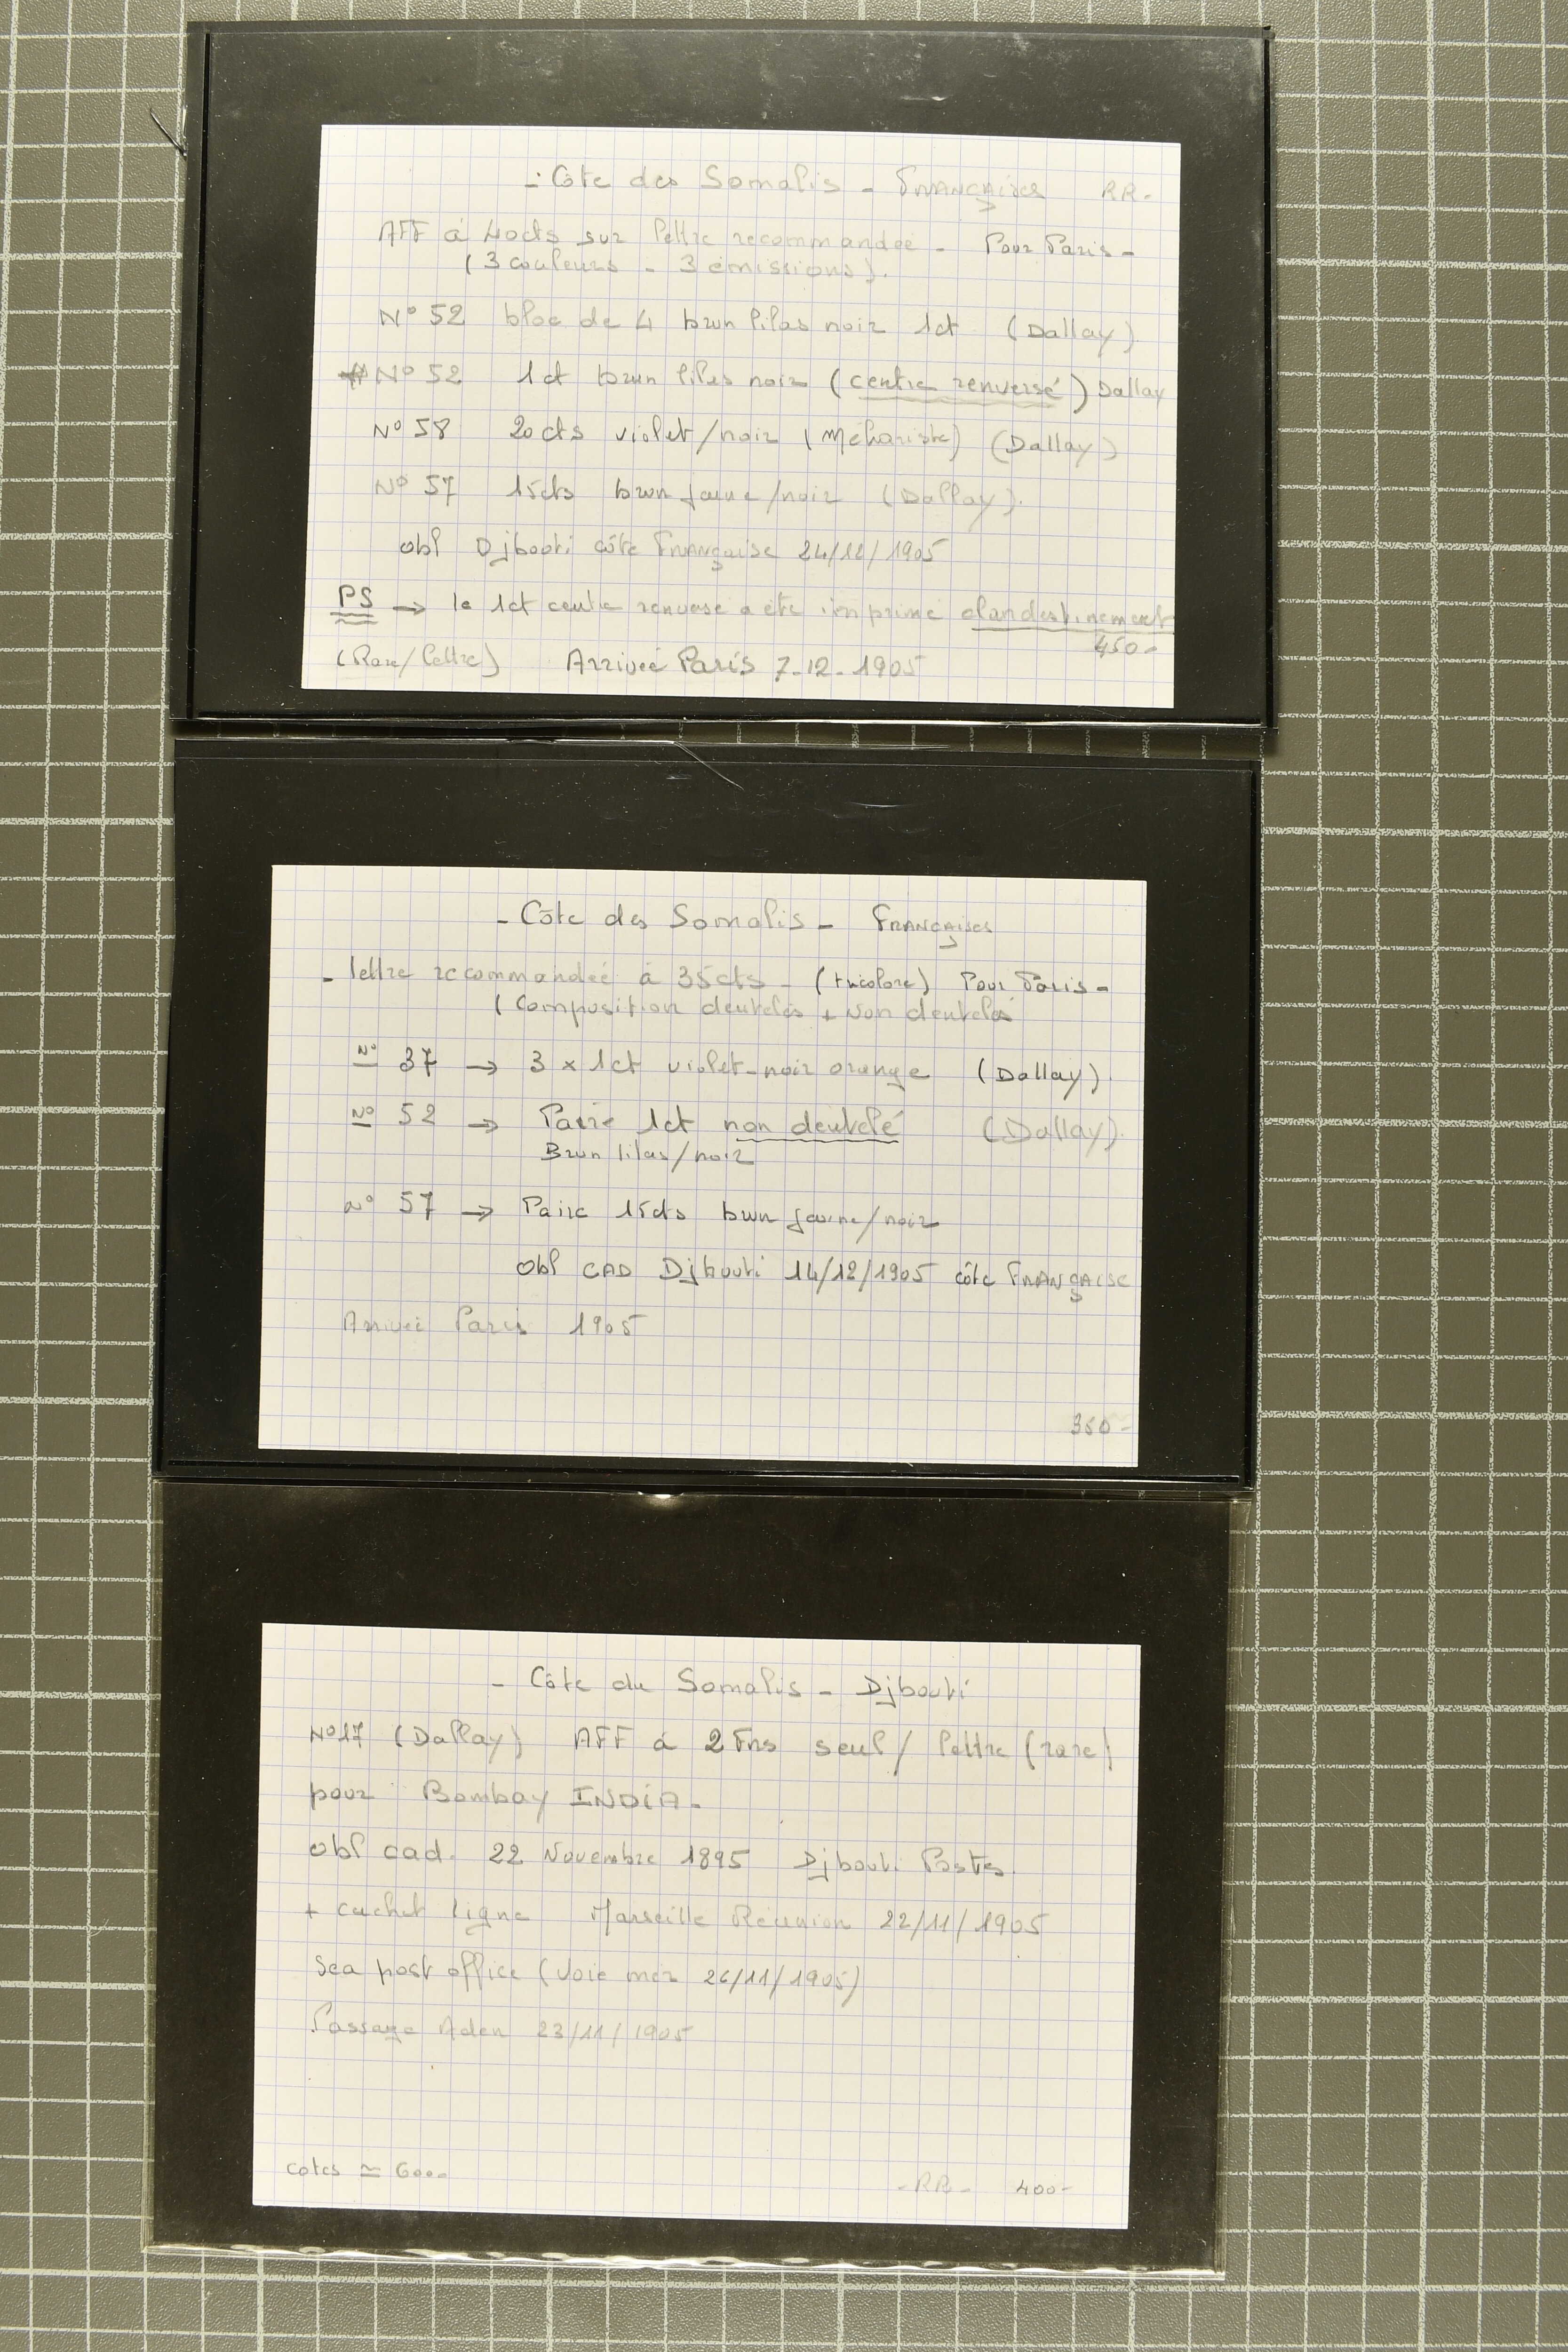 -: Côte des Somalis - FRANÇAISES RR-
AFF à 40cts sur lettre recommandée - Pour Paris -
(3 couleurs - 3 émissions).
N° 52 bloc de 4 brun lilas noir 1ct (Dallay).
N° 52 1ct brun lilas noir (centre renversé) Dallay
N° 58 20cts violet/noir (Méhariste) (Dallay)
N° 57 15cts brun jaune/noir (Dallay).
obl Djbouti côte FRANçaise 24/12/1905
PS → le 1ct centre renversé a été imprimé clandestinement
450-
(Rare/lettre) Arrivée Paris 7-12-1905
- Côte des Somalis - FRANÇAISES
- lettre recommandée à 35cts - (tricolore) Pour Paris -
(Composition dentelés + Non dentelés
N° 37 → 3 x 1ct violet-noir orange (Dallay).
N° 52 → Paire 1ct non dentelé (Dallay).
Brun lilas/noir
N° 57 → Paire 15cts brun jaune/noir
obl CAD Djbouti 14/12/1905 côte FRANÇAISE
Arrivée Paris 1905
350-
- Côte du Somalis - Djbouti
N°17 (Dallay) AFF à 2 Frs seul/ lettre (rare)
pour Bombay INDIA-
obl cad. 22 Novembre 1895 Djbouti Postes.
+ cachet ligne Marseille Réunion 22/11/1905
Sea post office (Voie mer 26/11/1905)
Passage Aden 23/11/1905
cotes ≃ 6000
-RR- 400-